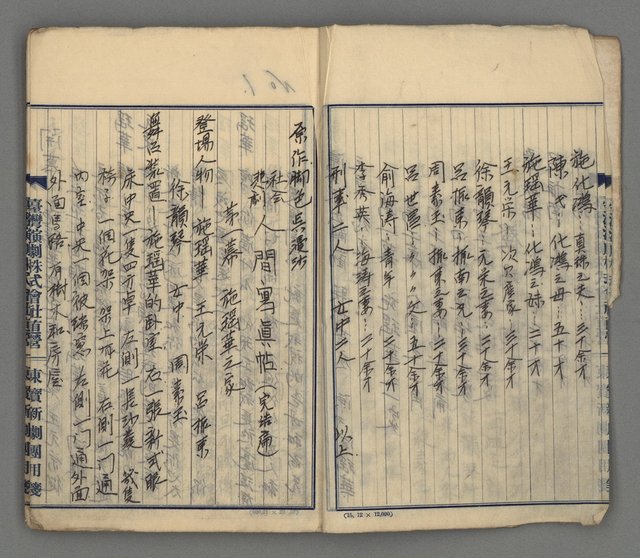 施化鴻 真珠之夫…三十余才
陳氏…化鴻之母…五十才
施瑶華…化鴻之妹…二十才
王元栄…次ノ座家…三十余才
徐韻琴…元栄之妻…二十余才
呂振東…振南之兄…三十余才
周素玉…振東之妻…二十余才
呂世區…〃〃〃父…五十余才
俞海涛…青年…二十余才
李秀英…海涛之妻…二十余才
刑事二人 女中二人 以上
(15, 12 × 12,000)
No 1.
原作脚色 呉漫沙
社会悲劇 人間寫真帖(完結通)
第一幕 施瑶華之家
登場人物―施瑶華 王元栄 呂振東
徐韻琴 女中 周素玉
舞台装置―施瑶華的卧室 右一張新式眠
床中央一隻四方卓 左側一張沙發 幾隻
椅子 一個花架 架上有花 右側一門通
内室 中央一個玻璃窓 左側一門通外面
外面馬路 有樹木和房屋
臺灣演劇株式會社直營――東寶新劇團用箋